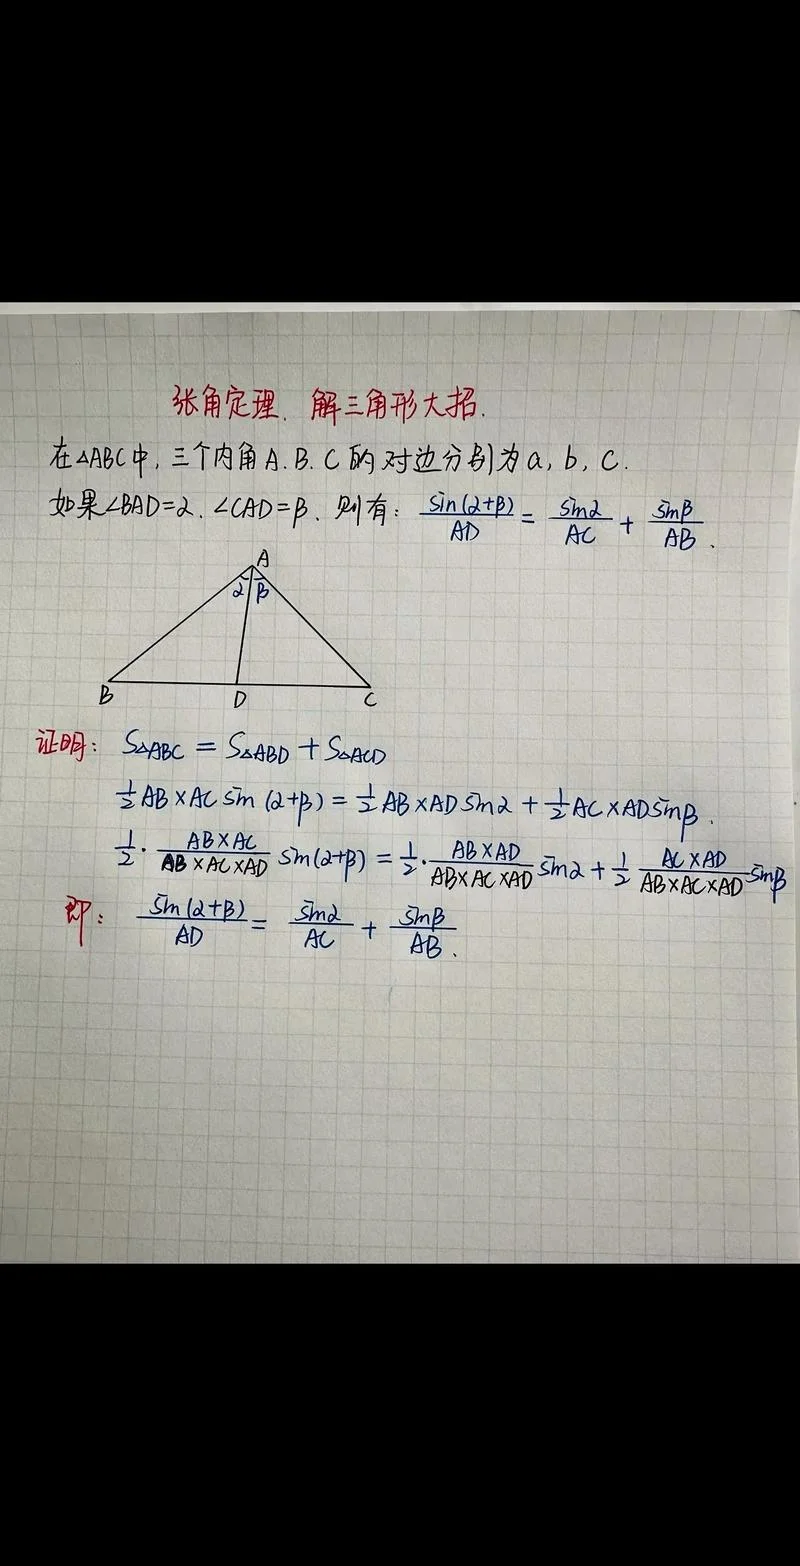 张角定理、解三角形大招.
在△ABC中,三个内角A.B.C的对边分别为a,b,c.
如果∠BAD=α.∠CAD=β、则有: sin(α+β)/AD = sinα/AC + sinβ/AB.
A
α β
B D C
证明: S△ABC = S△ABD + S△ACD
1/2 AB×AC sin(α+β) = 1/2 AB×AD sinα + 1/2 AC×AD sinβ.
1/2 · AB×AC/AB×AC×AD sin(α+β) = 1/2 · AB×AD/AB×AC×AD sinα + 1/2 AC×AD/AB×AC×AD sinβ
即: sin(α+β)/AD = sinα/AC + sinβ/AB.